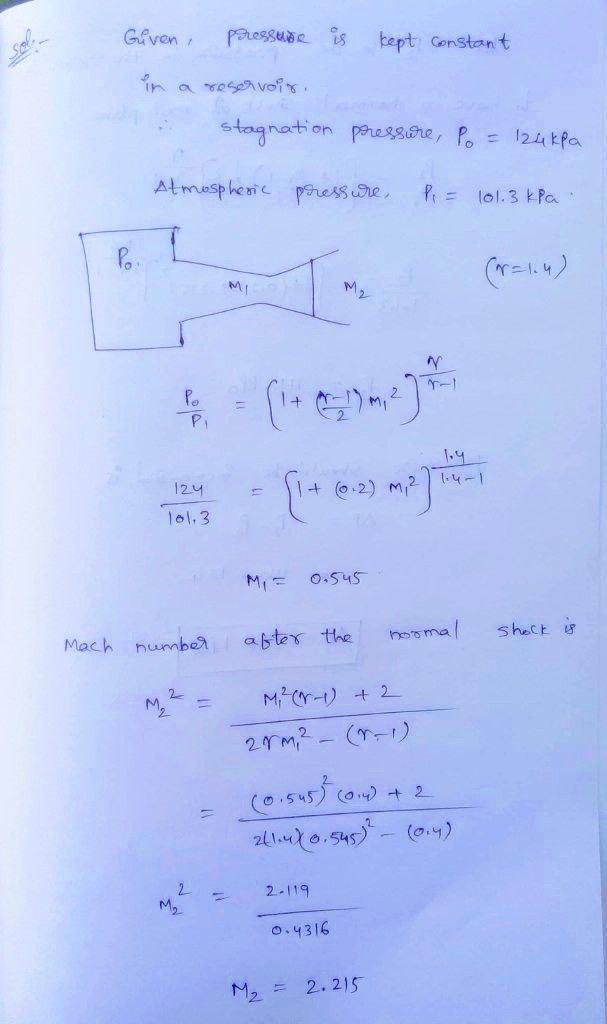 sol:-
Given, pressure is kept constant
in a reservoir.
∴ stagnation pressure, P₀ = 124 kPa
Atmospheric pressure, P₁ = 101.3 kPa.
P₀. M₁ M₂ (γ=1.4)
P₀/P₁ = (1 + (γ-1/2) M₁²)^(γ/γ-1)
124/101.3 = (1 + (0.2) M₁²)^(1.4/1.4-1)
M₁ = 0.545
Mach number after the normal shock is
M₂² = M₁²(γ-1) + 2 / 2γM₁² - (γ-1)
= (0.545)²(0.4) + 2 / 2(1.4)(0.545)² - (0.4)
M₂² = 2.119 / 0.4316
M₂ = 2.215